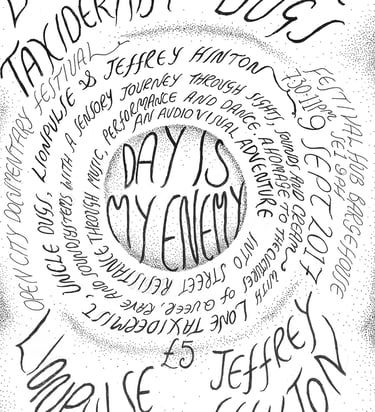 TAXIDERMIST
DUGS
OPEN CITY DOCUMENTARY FESTIVAL
FESTIVAL HUB BARGEHOUSE
7.30-11PM 9 SEPT 2017
DAY IS
MY ENEMY
AN AUDIOVISUAL ADVENTURE
INTO STREET RESISTANCE THROUGH MUSIC, PERFORMANCE AND DANCE, A HOMAGE TO THE CULTURES
OF QUEER, RAVE AND SOUNDSYSTEMS WITH A SENSORY JOURNEY THROUGH SIGHTS, SOUNDS AND CREAM
WITH LONE TAXIDERMIST, UNCLE DUGS, LIONPULSE & JEFFREY HINTON
£5
LIONPULSE
JEFFREY
HINTON